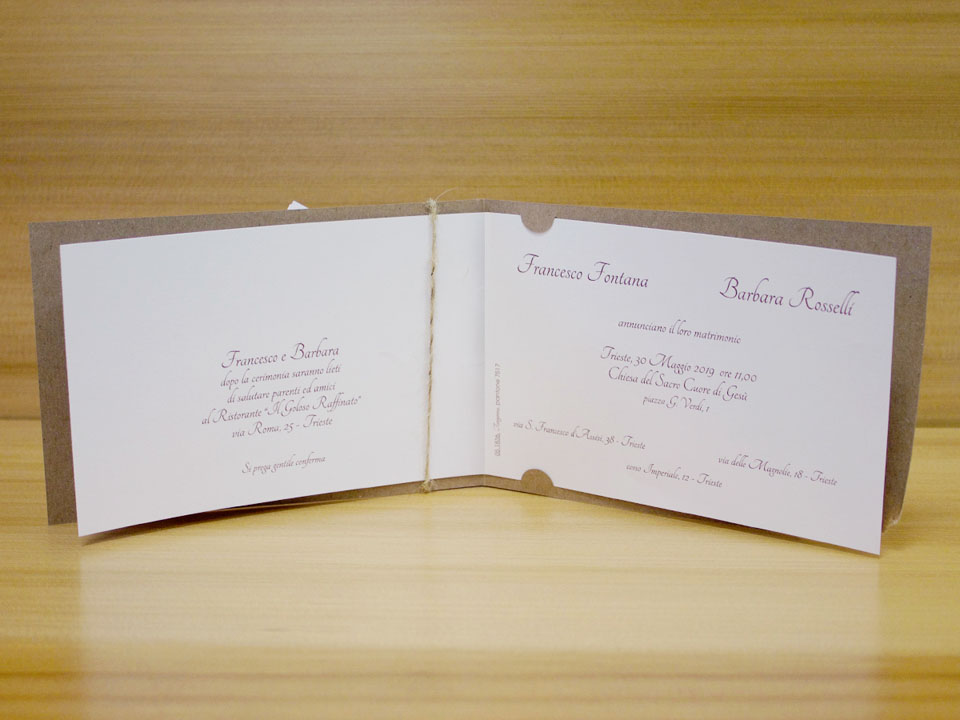 Francesco e Barbara
dopo la cerimonia saranno lieti
di salutare parenti ed amici
al Ristorante "Il Goloso Raffinato"
via Roma, 25 - Trieste
Si prega gentile conferma
Francesco Fontana
Barbara Rosselli
annunciano il loro matrimonio
Trieste, 30 Maggio 2019 ore 11,00
Chiesa del Sacro Cuore di Gesù
piazza G. Verdi, 1
via S. Francesco d'Assisi, 38 - Trieste
via delle Magnolie, 18 - Trieste
corso Imperiale, 12 - Trieste
pantone 7517